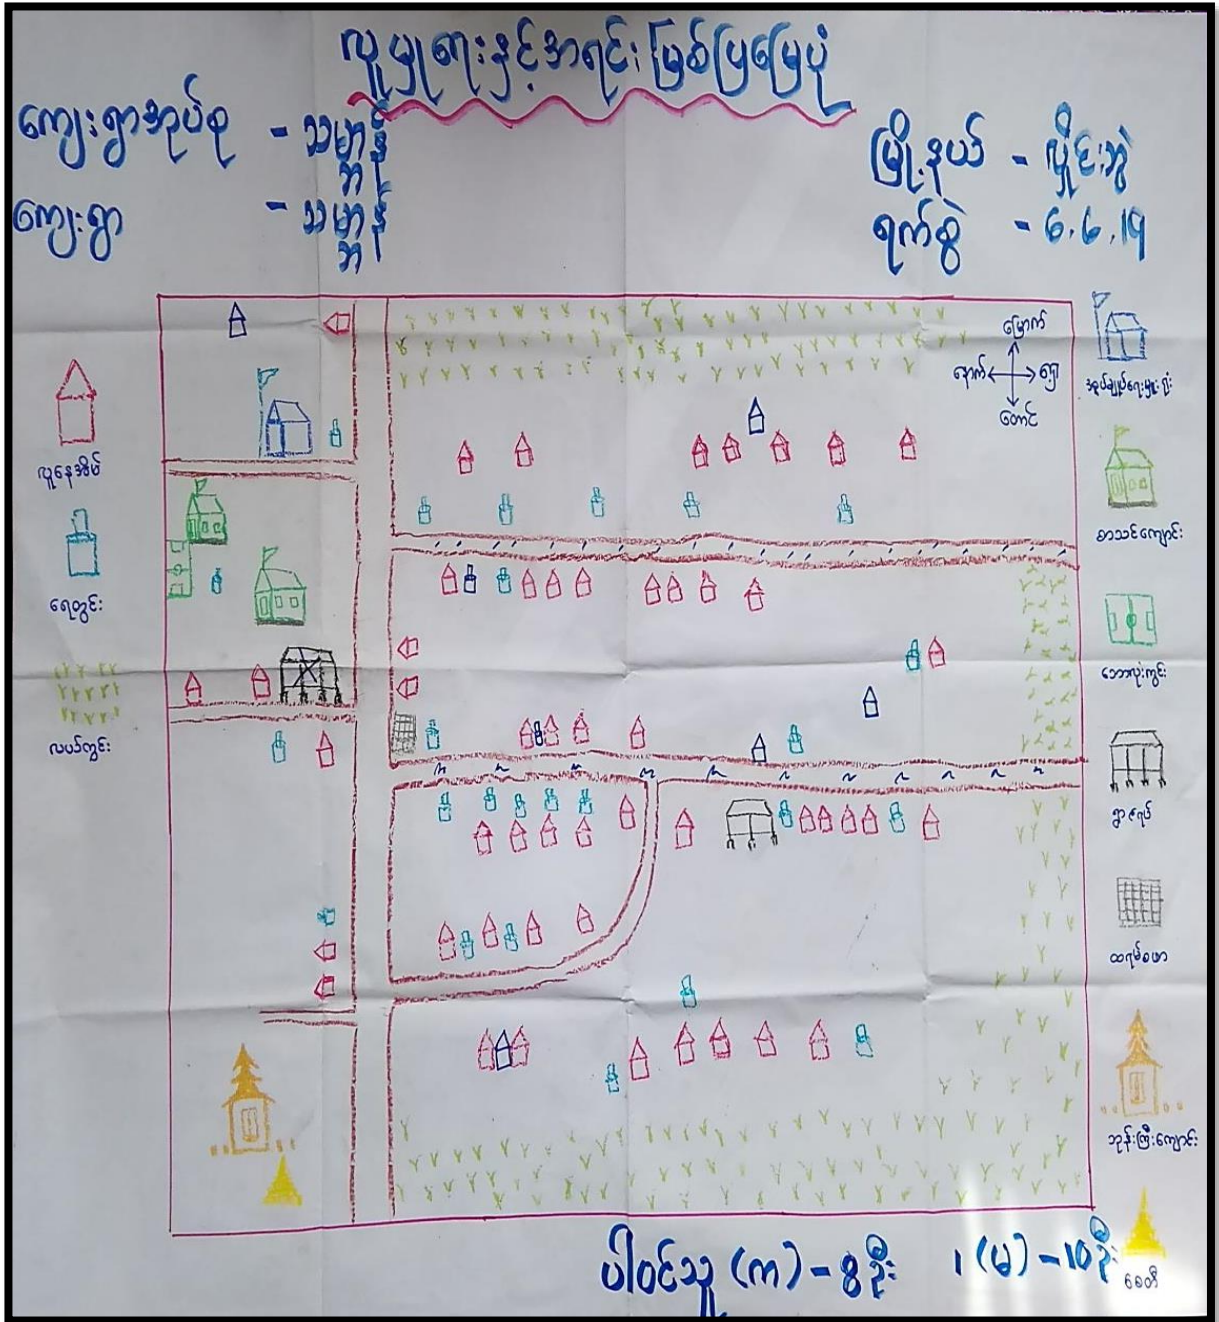 လူမှုရေးနှင့်အရင်းမြစ်ပြမြေပုံ
ကျေးရွာအုပ်စု -
ကျေးရွာ -
မြို့နယ် - လှိုင်းဘွဲ
ရက်စွဲ - 6.6.19
မြောက်
နောက် ရှေ့
တောင်
လူနေအိမ်
ရေတွင်း
လယ်ကွင်း
အုပ်ချုပ်ရေးမှူးရုံး
စာသင်ကျောင်း
ဘောလုံးကွင်း
ရွာဇရပ်
ထရမ်စဖာ
ဘုန်းကြီးကျောင်း
စေတီ
ပါဝင်သူ (ကျ) - 8 ဦး ၊ (မ) - 10 ဦး